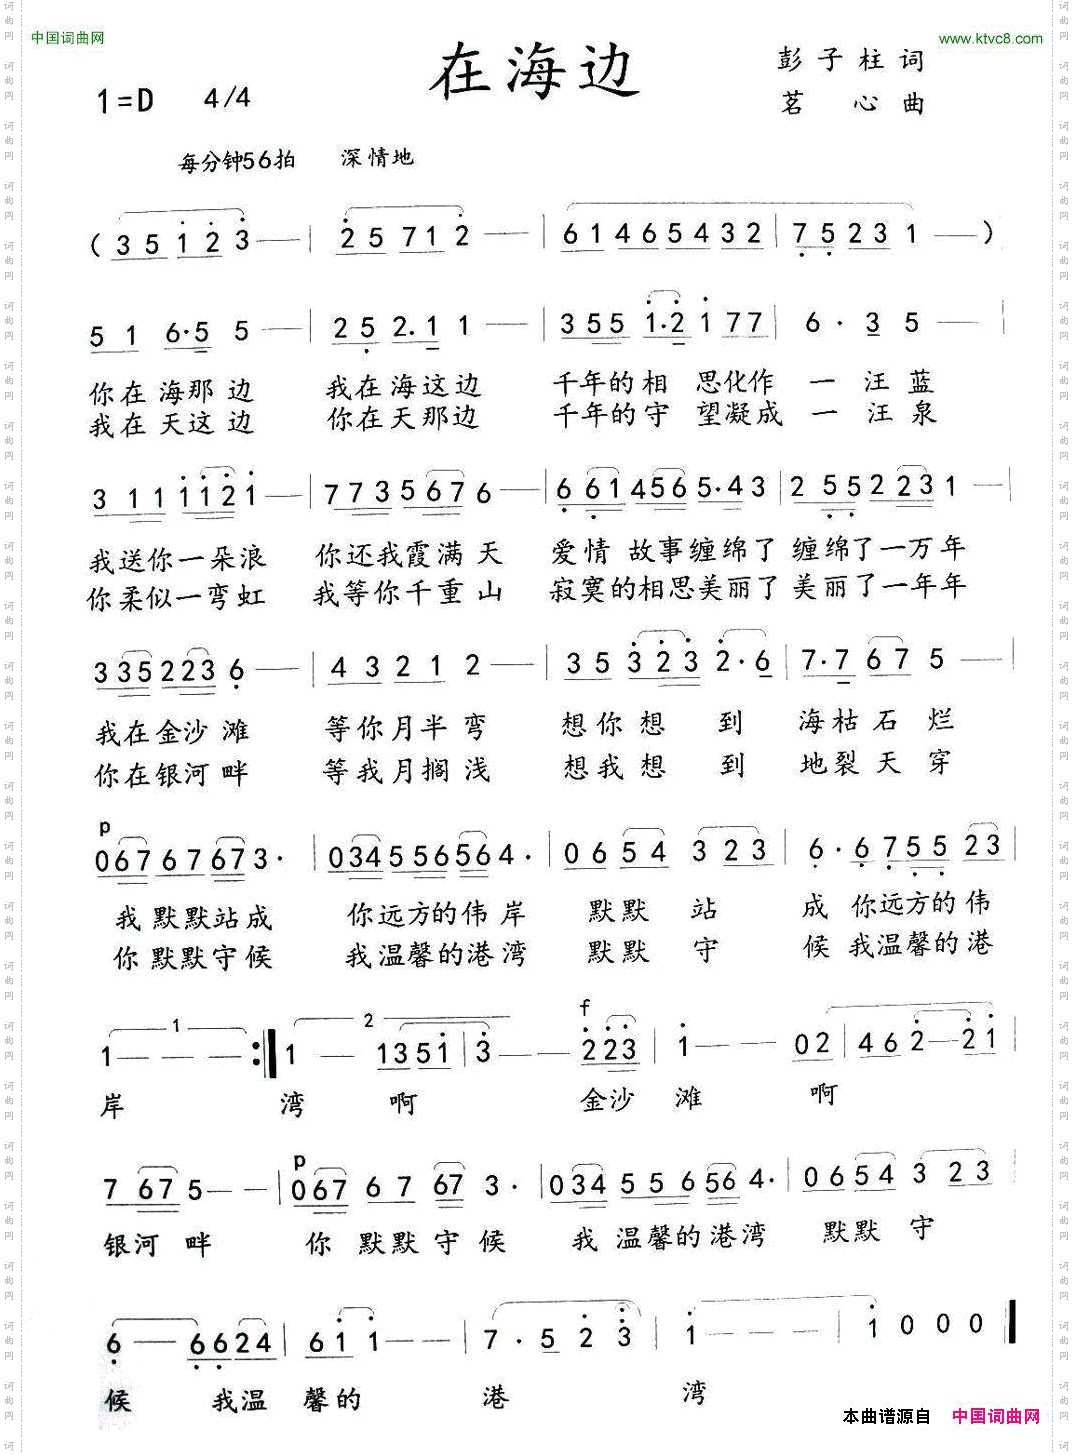 中国词曲网
www.ktvc8.com
在海边
彭子柱词
1=D 4/4
茗 心 曲
每分钟56拍 深情地
( 3 5 1 2 3 — | 2 5 7 1 2 — | 6 1 4 6 5 4 3 2 | 7 5 2 3 1 — )
5 1 6·5 5 — | 2 5 2·1 1 — | 3 5 5 1·2 1 7 7 | 6· 3 5 — |
你在海那边 我在海这边 千年的相 思化作 一 汪蓝
我在天这边 你在天那边 千年的守 望凝成 一 汪泉
3 1 1 1 1 2 1 — | 7 7 3 5 6 7 6 — | 6 6 1 4 5 6 5·4 3 | 2 5 5 2 2 3 1 — |
我送你一朵浪 你还我霞满天 爱情 故事缠绵了 缠绵了一万年
你柔似一弯虹 我等你千重山 寂寞的相思美丽了 美丽了一年年
3 3 5 2 2 3 6 — | 4 3 2 1 2 — | 3 5 3 2 3 2·6 | 7·7 6 7 5 — |
我在金沙滩 等你月半弯 想你想 到 海枯石烂
你在银河畔 等我月搁浅 想我想 到 地裂天穿
p
0 6 7 6 7 6 7 3· | 0 3 4 5 5 6 5 6 4· | 0 6 5 4 3 2 3 | 6· 6 7 5 5 2 3 |
我默默站成 你远方的伟岸 默默 站 成 你远方的伟
你默默守候 我温馨的港湾 默默 守 候 我温馨的港
1 2 f
1 — — — :| 1 — 1 3 5 1 | 3 — — 2 2 3 | 1 — — 0 2 | 4 6 2 — 2 1 |
岸 湾 啊 金沙 滩 啊
p
7 6 7 5 — — | 0 6 7 6 7 6 7 3· | 0 3 4 5 5 6 5 6 4· | 0 6 5 4 3 2 3 |
银河 畔 你 默默守候 我 温馨的港湾 默默 守
6 — 6 6 2 4 | 6 1 1 — — | 7· 5 2 3 | 1 — — — | 1 0 0 0
候 我温 馨的 港 湾
本曲谱源自 中国词曲网